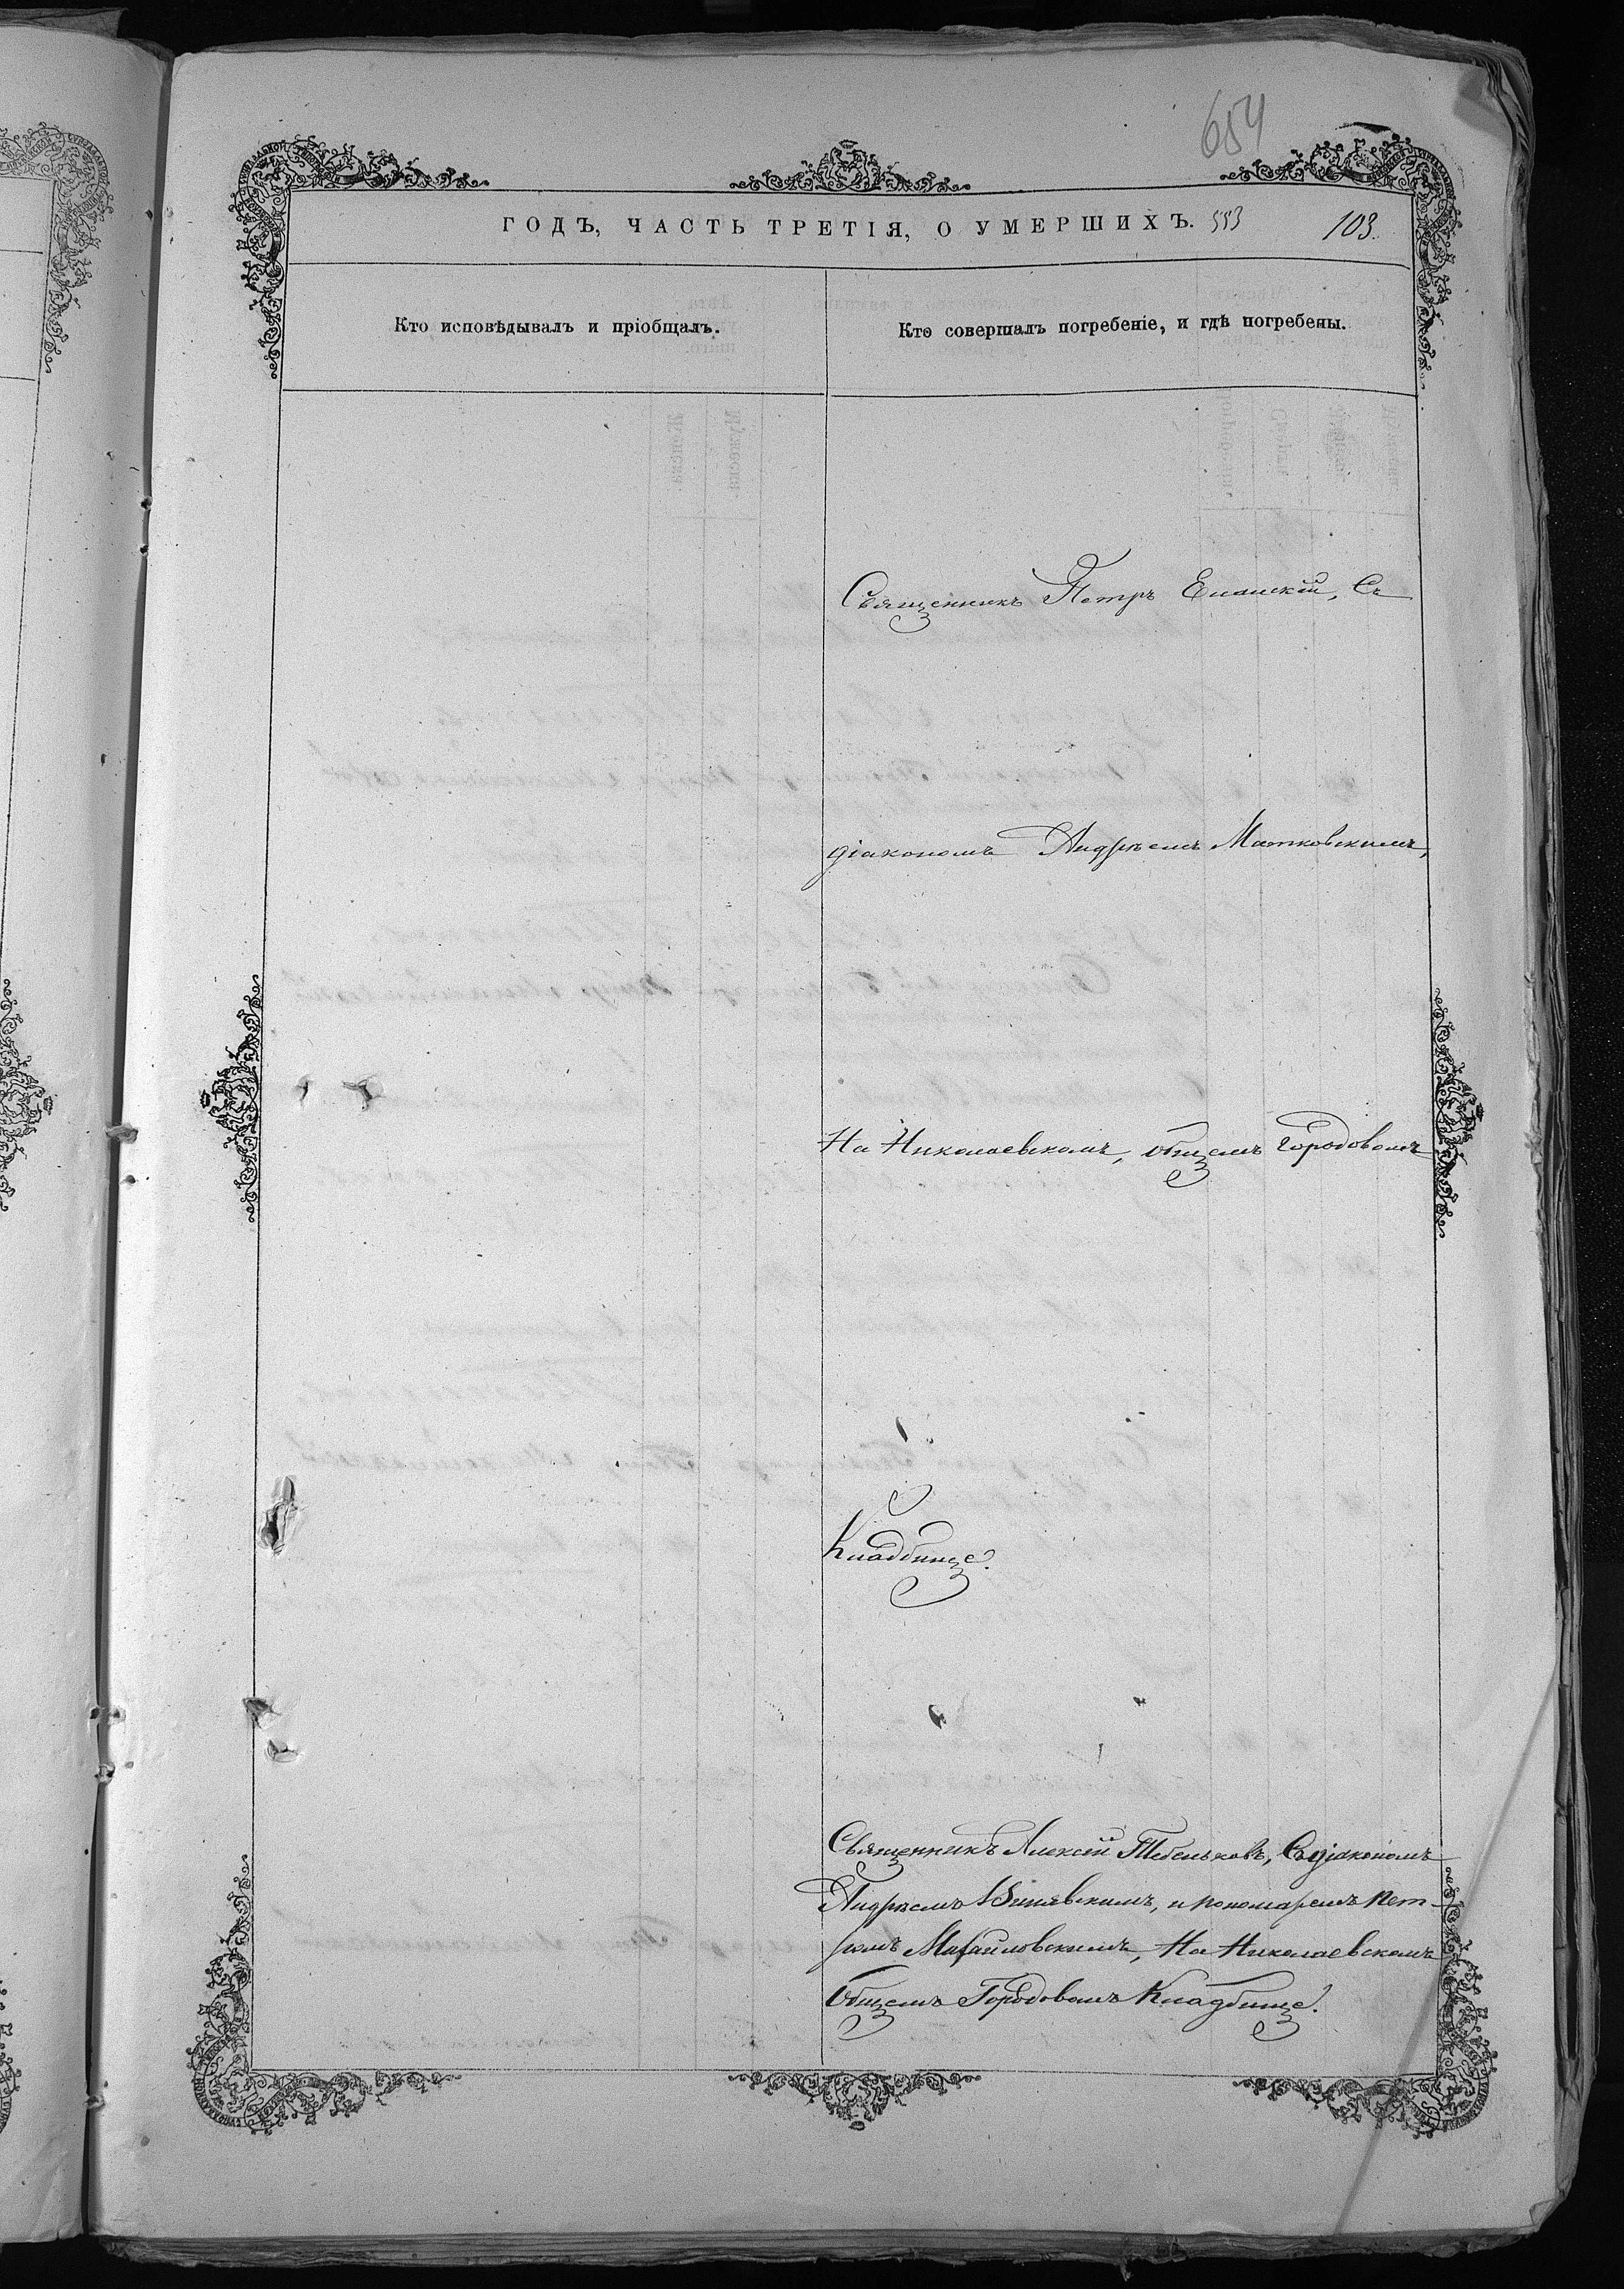 654
ГОДЪ, ЧАСТЬ ТРЕТІЯ, О УМЕРШИХЪ. 553 103.
Кто исповѣдывалъ и пріобщалъ.
Кто совершалъ погребеніе, и гдѣ погребены.
Священникъ Петръ Еланскій, Съ
діакономъ Андрѣемъ Матковскимъ,
На Николаевскомъ, общемъ городовомъ
Кладбище.
Священникъ Алексій Тебеньковъ, Съ діакономъ
Андрѣемъ, и пономаремъ Пет-
ромъ Михайловскимъ, На Николаевскомъ
Общемъ Городовомъ Кладбище.